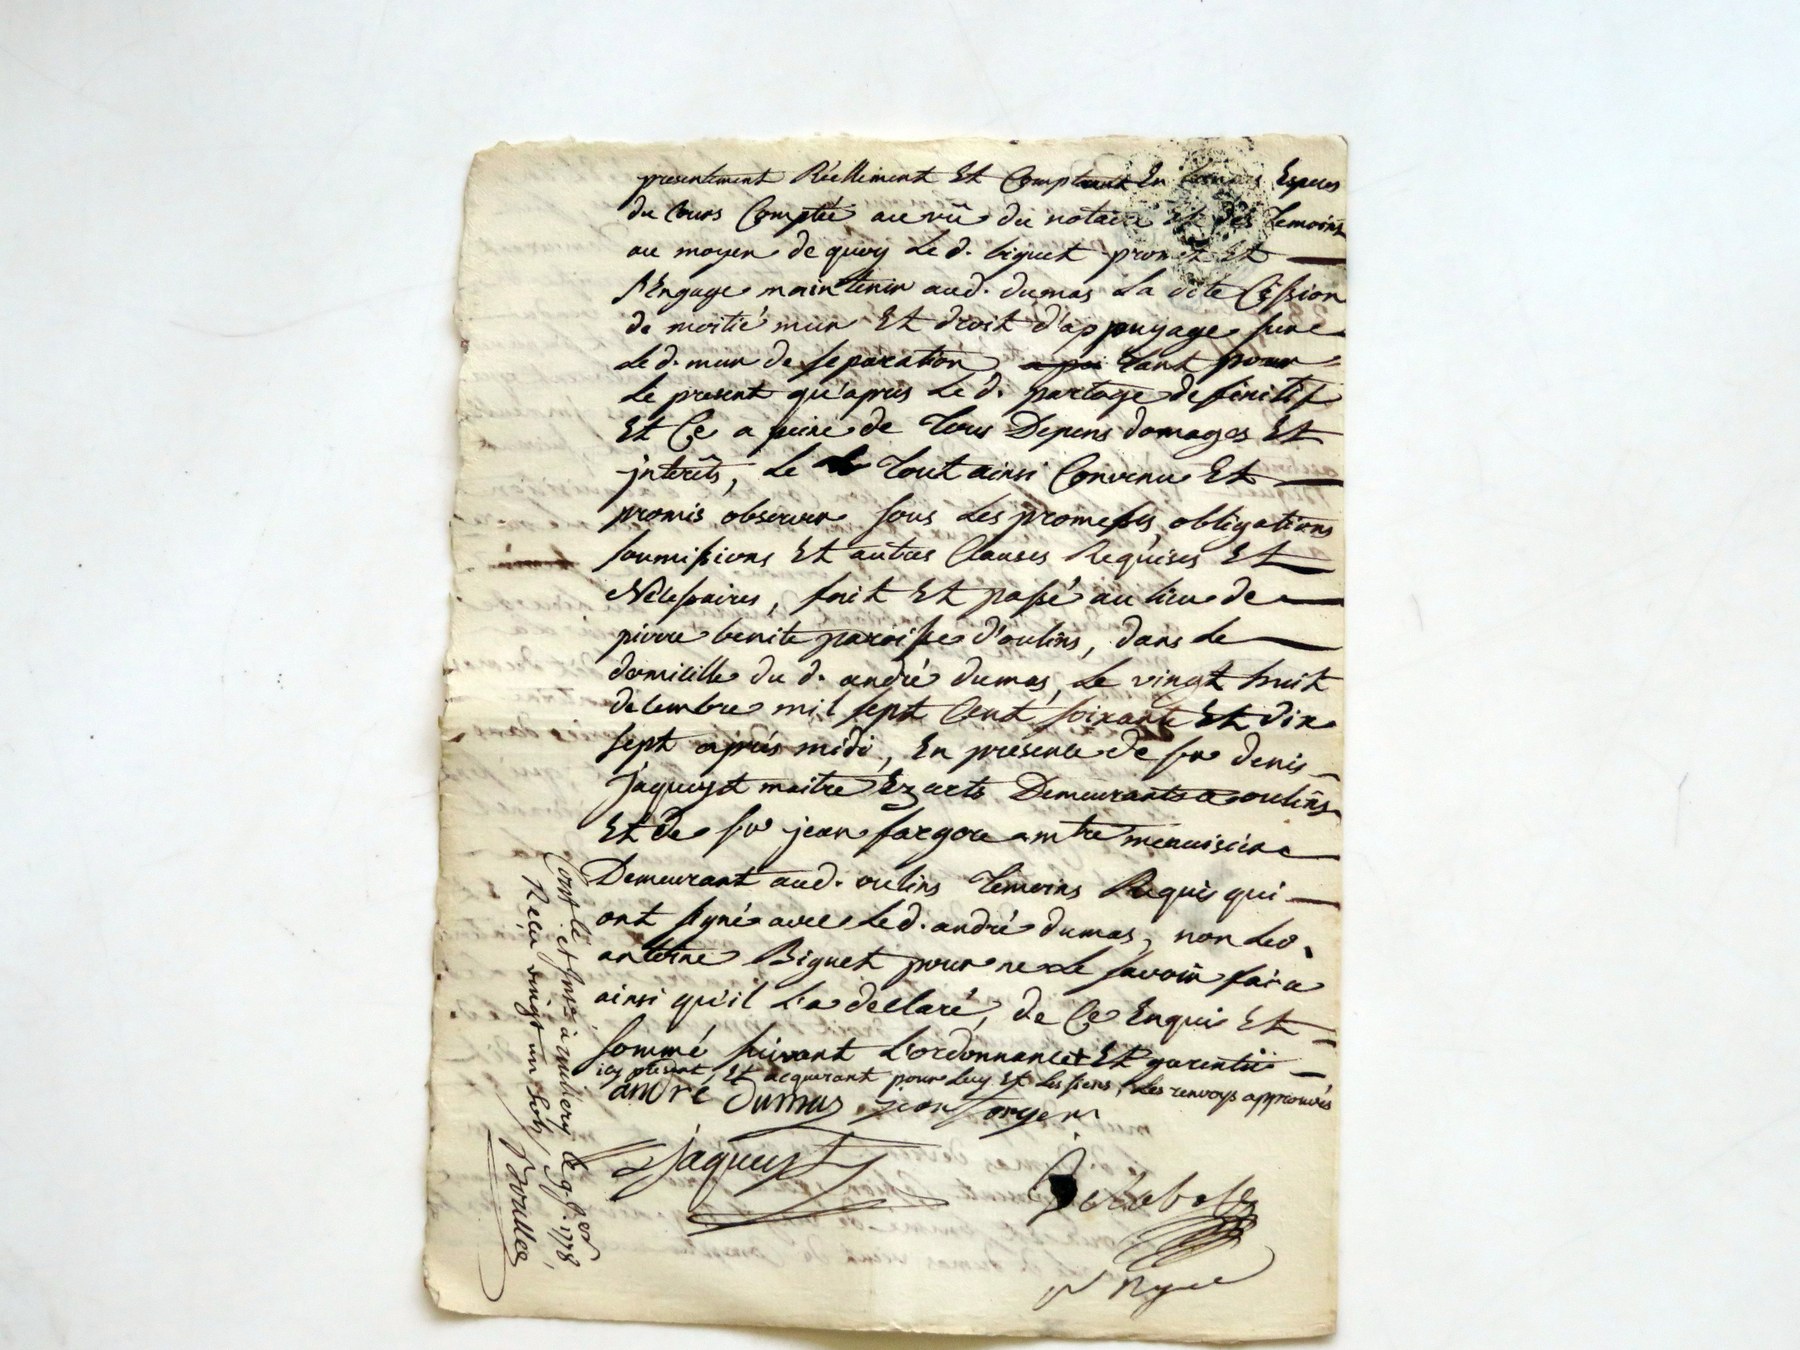 presentement Réellement Et Comptant En Especes
du Cours Comptée au vû du notaire et des temoins
au moyen de quoy Le d. biguet promet Et
s'Engage maintenir aud. dumas La dite Cession
de moitié mur Et droit d'appuyage sur
Le d. mur de separation, tant pour
Le present qu'après Le d. partage définitif
Et Ce a peine de tous Depens domages Et
jnterêts, Le tout ainsi Convenu Et
promis observer sous Les promesses, obligations
soumissions Et autres Clauses Requises Et
Nécessaires, fait Et passé au lieu de
pierre benite paroisse d'oulins, dans Le
domicille du d. andré dumas, Le vingt huit
decembre mil sept Cent soixante Et dix
sept après midi, En présence de sr denis
jaqueyst maitre Ez arts Demeurant a oulins
Et de sr jean fargere mtre menuisier
Demeurant aud. oulins temoins Requis qui
ont signé avec Le d. andré dumas, non Led.
antoine Biguet pour ne Le savoir faire
ainsi qu'il L'a declaré, de Ce Enquis Et
sommé suivant L'ordonnance Et garentie
icy présent, Et acquerant pour Luy Et Les siens, Les renvoys approuvés
andré Dumas jean forgere
jaqueyst
Contlé et Insé à le 9 fer 1778,
Reçu vingt un sols